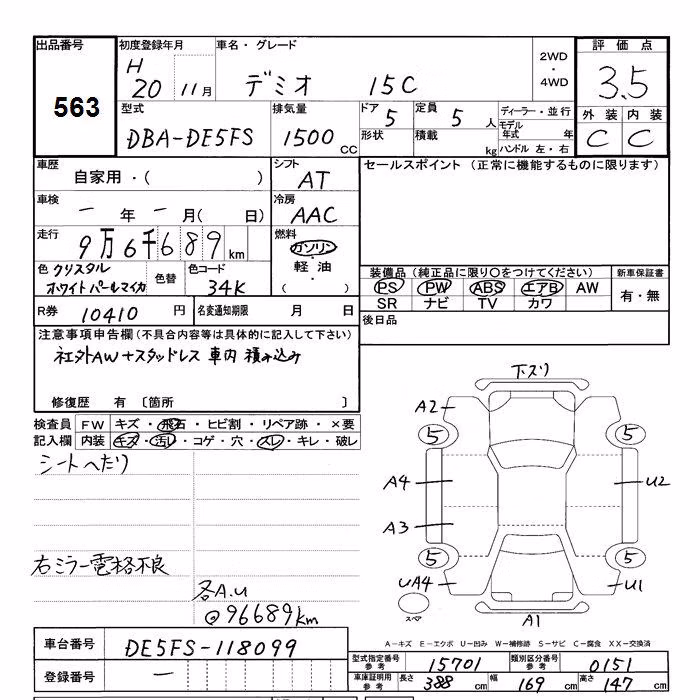 出品番号
563
初度登録年月
H 20 11月
車名・グレード
デミオ 15C
2WD
・
4WD
評価点
3.5
外装 内装
C C
型式
DBA-DE5FS
排気量
1500 CC
ドア
5
定員
5 人
形状
積載
kg
ディーラー・並行
モデル年式 年
ハンドル 左・右
車歴
自家用・( )
シフト
AT
セールスポイント (正常に機能するものに限ります)
車検
ー 年 ー 月( 日)
冷房
AAC
走行
9万6千689 km
燃料
ガソリン
・
軽油
( )
色 クリスタル
ホワイトパールマイカ
色替
色コード
34K
装備品(純正品に限り○をつけてください)
PS PW ABS エアB AW
SR ナビ TV カワ
新車保証書
有・無
R券 10410 円
名変通知期限 月 日
後日品
注意事項申告欄(不具合内容等は具体的に記入して下さい)
社外AW+スタッドレス 車内 積み込み
修復歴 有 〔箇所 〕
検査員
記入欄
FW キズ・飛石・ヒビ割・リペア跡・×要
内装 キズ・汚レ・コゲ・穴・スレ・キレ・破レ
シートへたり
右ミラー電格不良
各A.U
@96689km
下ズリ
A2
5
5
A4
U2
A3
5
5
UA4
U1
スペア
A1
A-キズ E-エクボ U-凹み W-補修跡 S-サビ C-腐食 XX-交換済
車台番号
DE5FS-118099
登録番号
ー
型式指定番号
参考
15701
類別区分番号
参考
0151
車庫証明用
参考
長さ 388 cm
幅 169 cm
高さ 147 cm